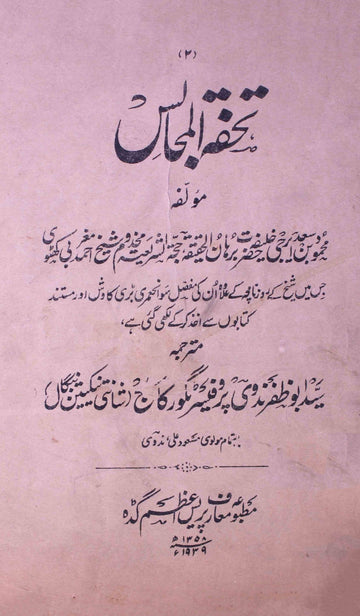 (۲)
تحفۃ المجالس
مؤلفہ
محمود بن سعد ایرجی خلیفہ حضرت برہان الحقیقۃ حجۃ الشریعۃ مخدوم شیخ احمد مغربی کھٹوی
جس میں شیخ کے روزنامچہ کے علاوہ ان کی مفصل سوانحعمری بڑی کاوش اور مستند
کتابوں سے اخذ کر کے لکھی گئی ہے،
مترجمہ
سید ابو ظفر ندوی پروفیسر ٹگور کالج (شانتی نیکیتن بنگال)
باہتمام مولوی مسعود علی ندوی
مطبوعہ معارف پریس اعظم گڈہ
۱۳۵۸ھ
۱۹۳۹ء